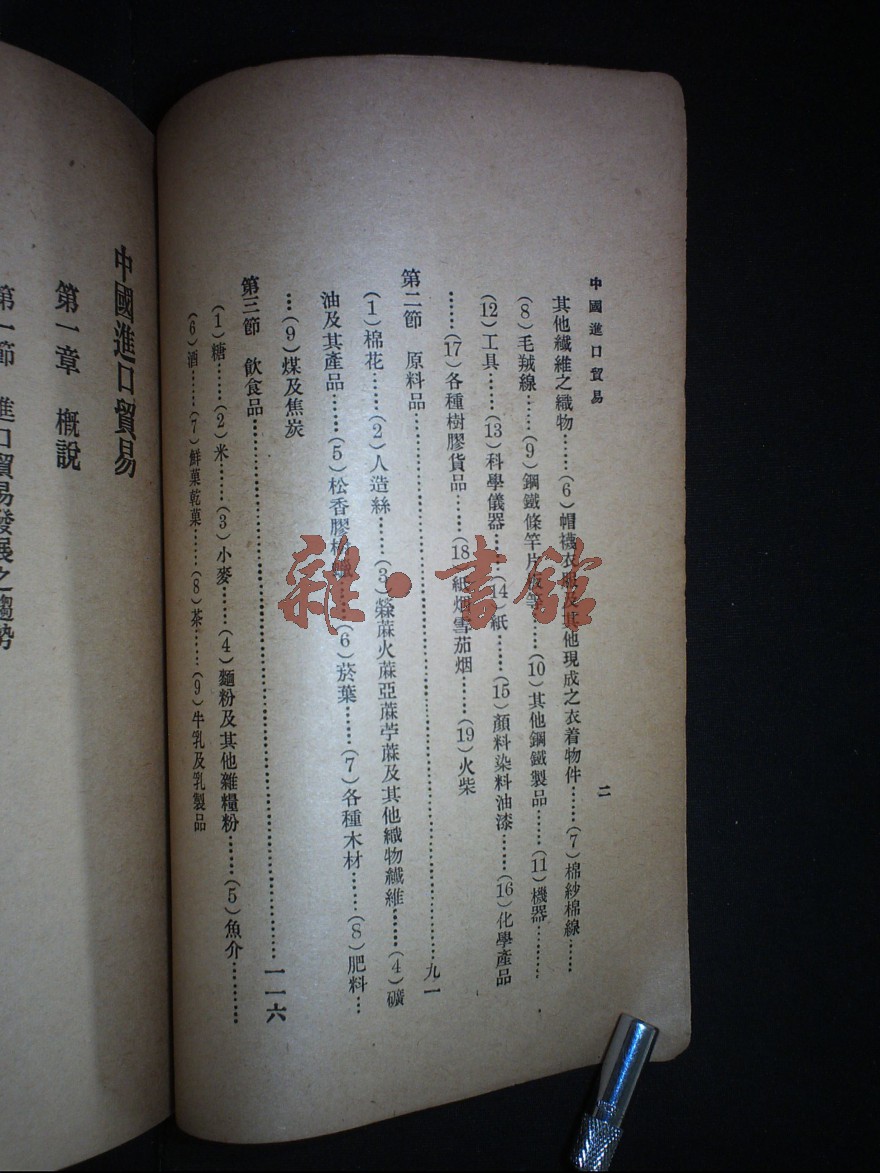 中國進口貿易
二
其他纖維之織物……(6)帽襪衣服及其他現成之衣着物件……(7)棉紗棉線……
(8)毛羢線……(9)鋼鐵條竿片板等……(10)其他鋼鐵製品……(11)機器………
(12)工具……(13)科學儀器……(14)紙……(15)顏料染料油漆……(16)化學產品
……(17)各種樹膠貨品……(18)紙烟雪茄烟……(19)火柴
第二節 原料品……九一
(1)棉花……(2)人造絲……(3)蔴火蔴亞蔴苧蔴及其他織物纖維……(4)礦
油及其產品……(5)松香膠……(6)菸葉……(7)各種木材……(8)肥料…
…(9)煤及焦炭
第三節 飲食品……一一六
(1)糖……(2)米……(3)小麥……(4)麵粉及其他雜糧粉……(5)魚介………
(6)酒……(7)鮮菓乾菓……(8)茶……(9)牛乳及乳製品
中國進口貿易
第一章 概說
第一節 進口貿易發展之趨勢
雜·書館